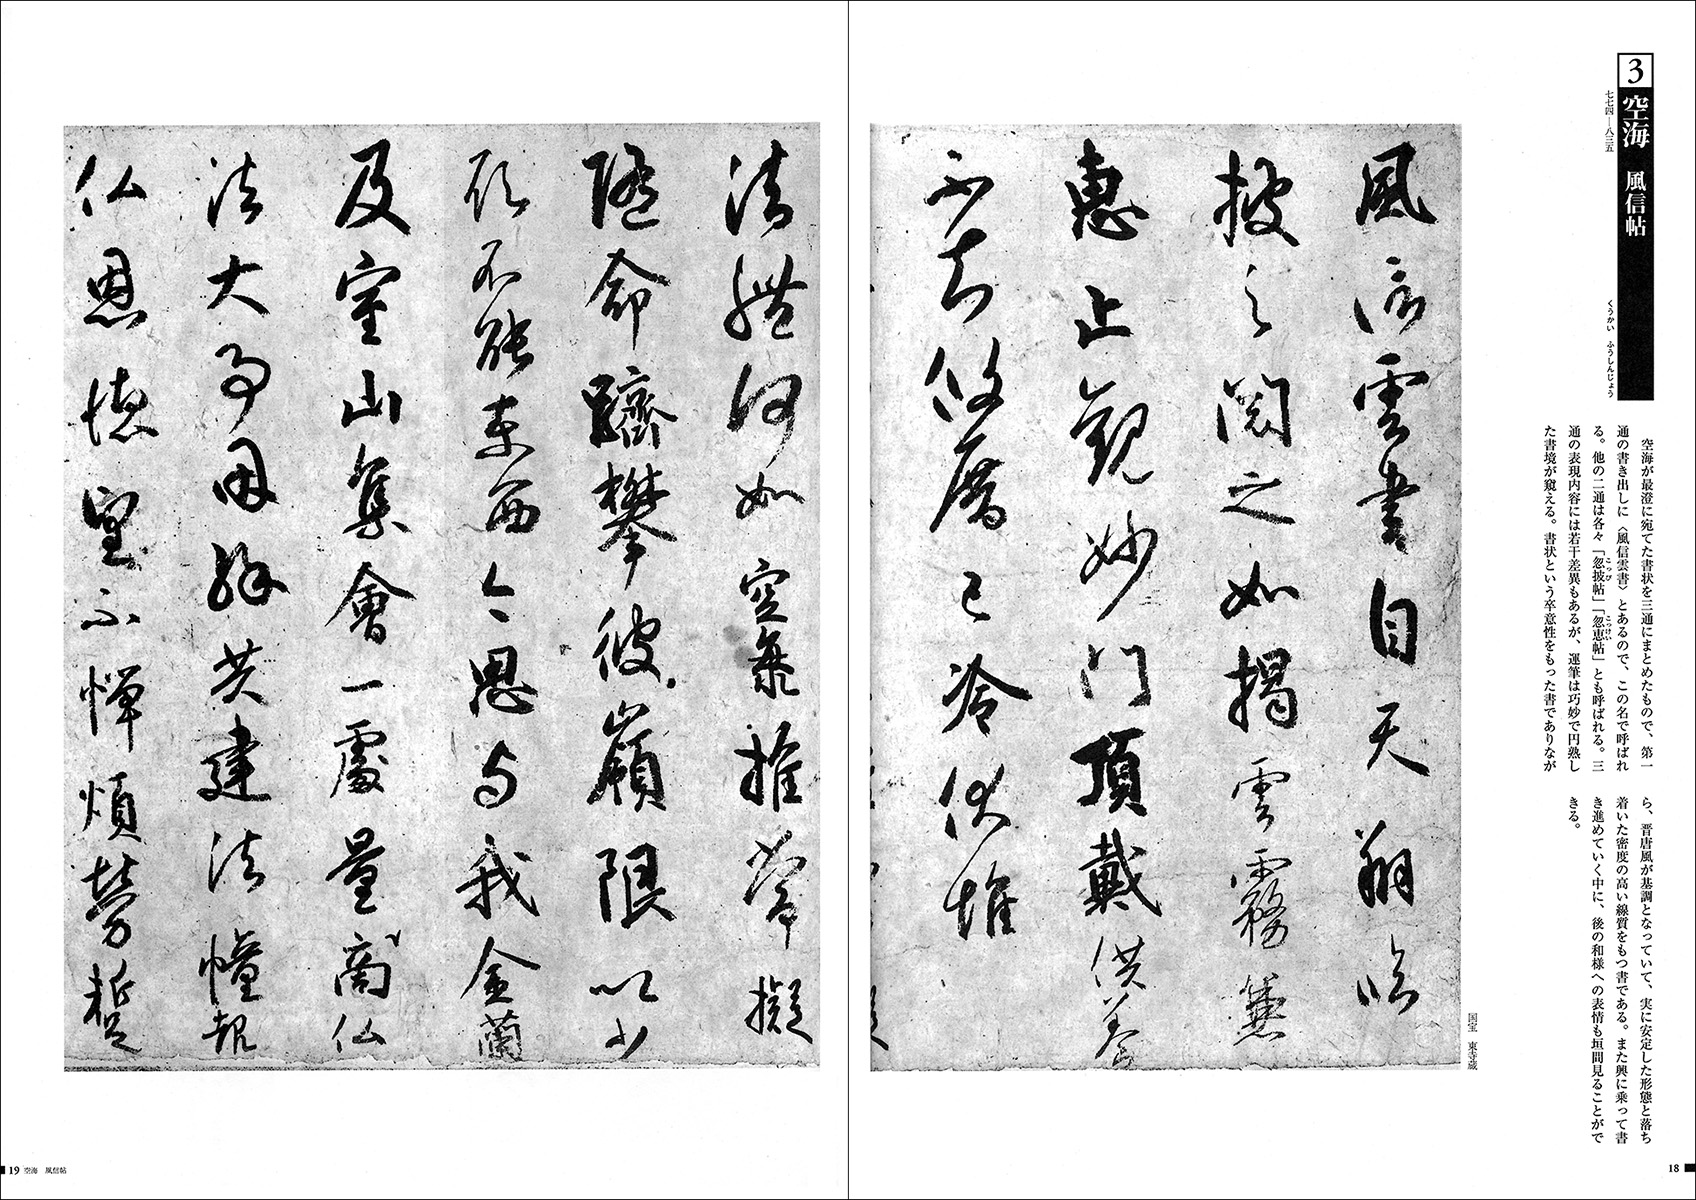 3 空海 風信帖
七七四―八三五
くうかい ふうしんじょう
空海が最澄に宛てた書状を三通にまとめたもので、第一
通の書き出しに〈風信雲書〉とあるので、この名で呼ばれ
る。他の二通は各々「忽披帖」「忽恵帖」とも呼ばれる。三
こっぴ
こっけい
通の表現内容には若干差異もあるが、運筆は巧妙で円熟し
た書境が窺える。書状という卒意性をもった書でありなが
ら、晋唐風が基調となっていて、実に安定した形態と落ち
着いた密度の高い線質をもつ書である。また興に乗って書
き進めていく中に、後の和様への表情も垣間見ることがで
きる。
国宝 東寺蔵
風信雲書自天翔臨
披之閲之如掲雲霧兼
恵止観妙門頂戴供養
不知攸厝已冷伏惟
法體何如空海推常擬
随命躋攀彼嶺限以少
願不能東西今思与我金蘭
及室山集會一處量商仏
法大事因縁共建法幢報
仏恩徳望不憚煩労蹔
18
19 空海 風信帖